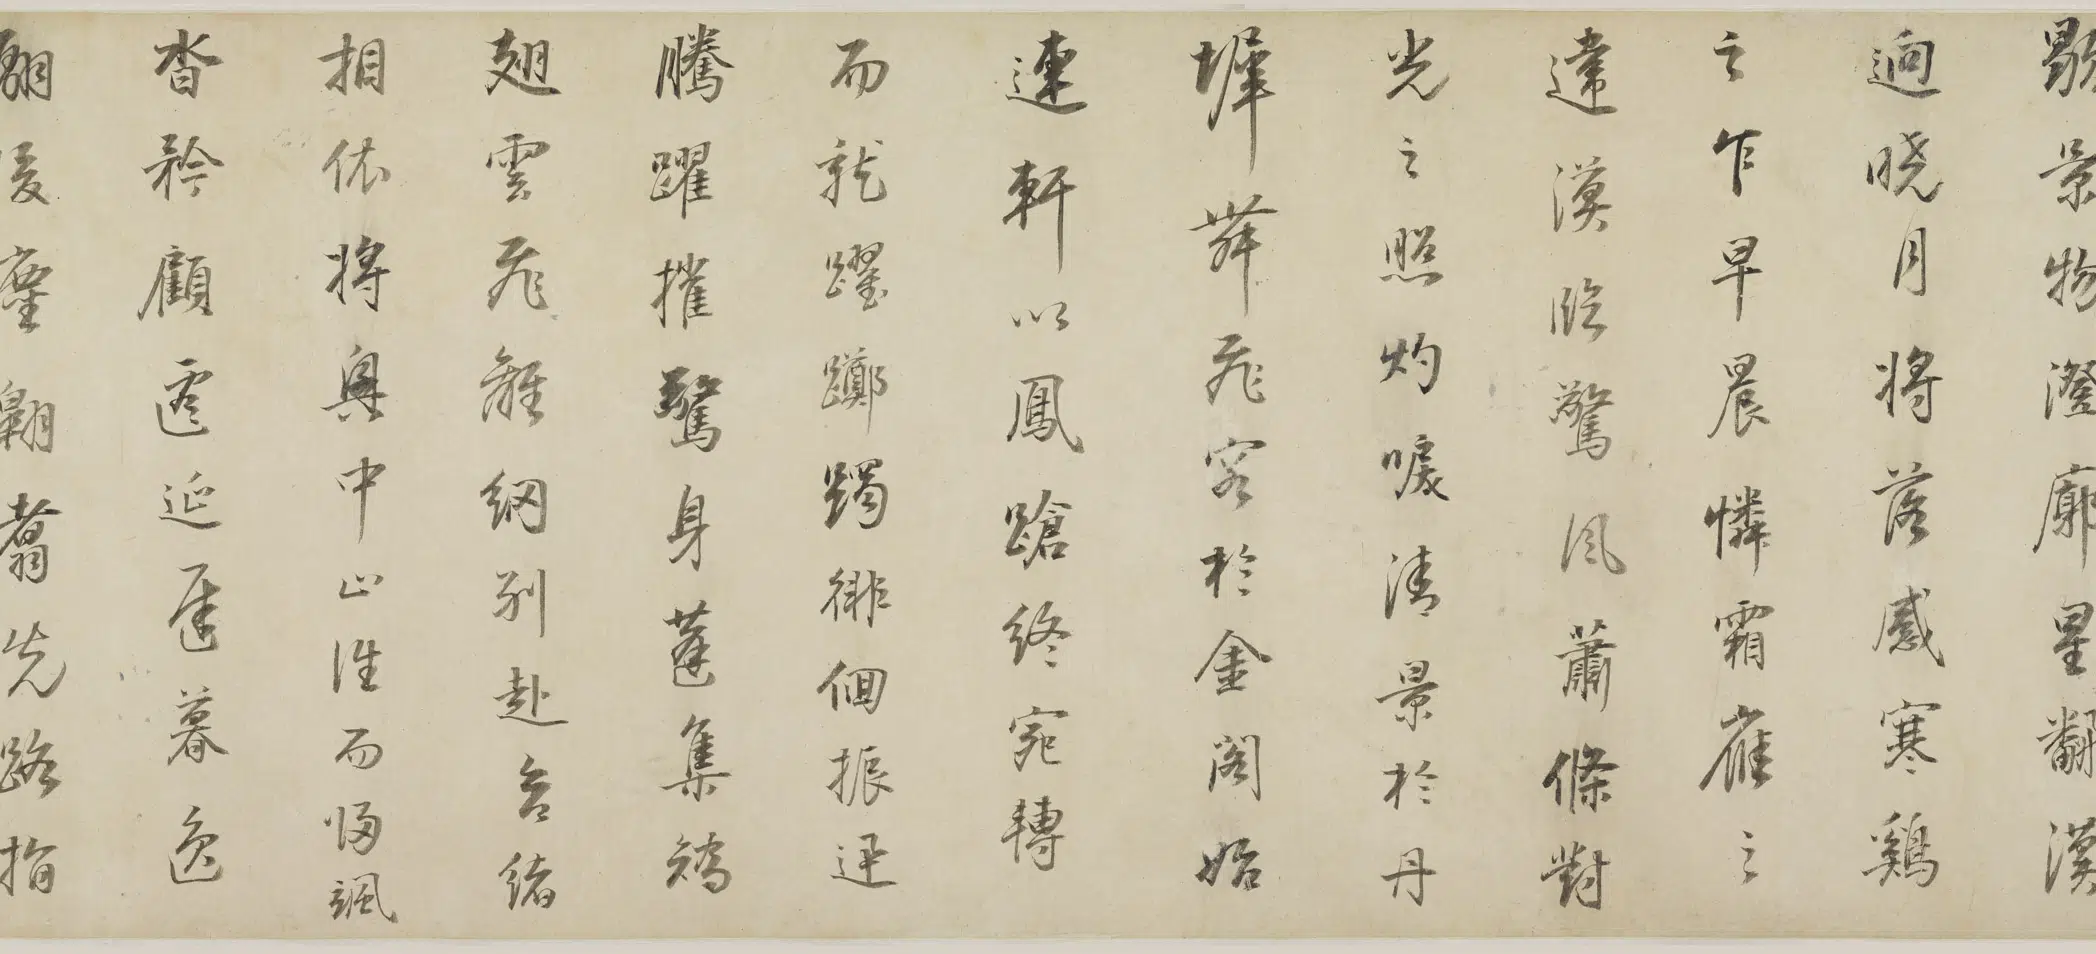 歇景物澄廓星翻漢
迥曉月將落感寒鷄
之乍早晨憐霜雁之
違漠臨驚風蕭條對
光之照灼唳清景於丹
墀舞飛容於金閣始
連軒以鳳蹌終宛轉
而龍躍躑躅徘徊振迅
騰躍摧驚身蓬集矯
翅雪飛離綱別赴合緒
相依將興中止往而歸颯
沓矜顧遷延遲暮逸
翮後塵翱翥先路指